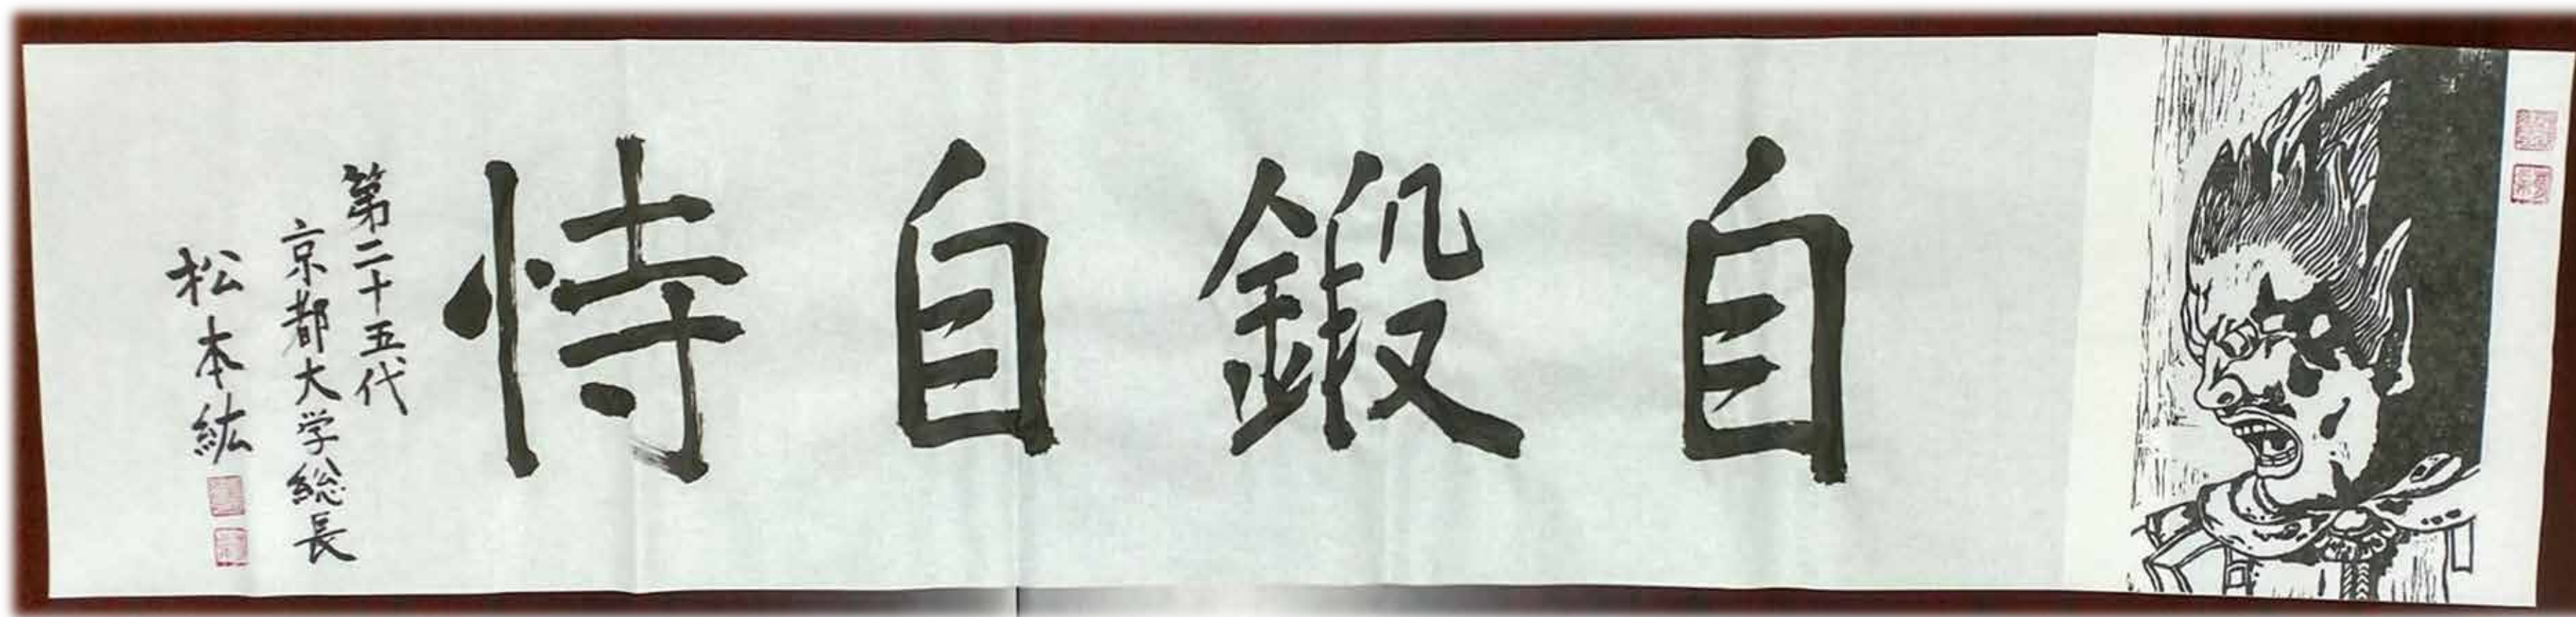 自鍛自恃
第二十五代
京都大学総長
松本紘